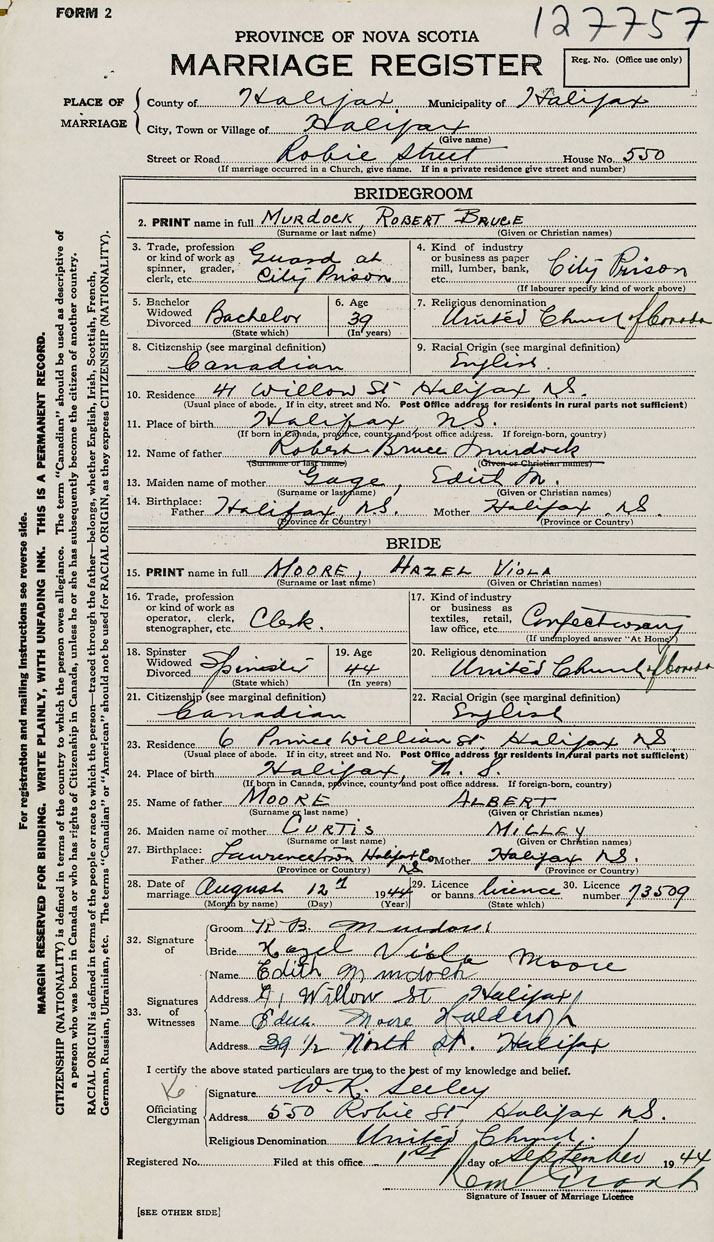 FORM 2
127757
PROVINCE OF NOVA SCOTIA
MARRIAGE REGISTER
Reg. No. (Office use only)
PLACE OF MARRIAGE
County of Halifax Municipality of Halifax
City, Town or Village of Halifax
(Give name)
Street or Road Robie Street House No. 550
(If marriage occurred in a Church, give name. If in a private residence give street and number)
BRIDEGROOM
2. PRINT name in full MURDOCK, ROBERT BRUCE
(Surname or last name) (Given or Christian names)
3. Trade, profession or kind of work as spinner, grader, clerk, etc. Guard at City Prison
4. Kind of industry or business as paper mill, lumber, bank, etc. City Prison
(If labourer specify kind of work above)
5. Bachelor Widowed Divorced Bachelor
(State which)
6. Age 39
(In years)
7. Religious denomination United Church of Canada
8. Citizenship (see marginal definition) Canadian
9. Racial Origin (see marginal definition) English.
10. Residence 41 Willow St Halifax N.S.
(Usual place of abode. If in city, street and No. Post Office address for residents in rural parts not sufficient)
11. Place of birth Halifax N.S.
(If born in Canada, province, county and post office address. If foreign-born, country)
12. Name of father Robert Bruce Murdock
(Surname or last name) (Given or Christian names)
13. Maiden name of mother Gage, Edith M.
(Surname or last name) (Given or Christian names)
14. Birthplace: Father Halifax, N.S. Mother Halifax N.S.
(Province or Country) (Province or Country)
BRIDE
15. PRINT name in full MOORE, HAZEL VIOLA
(Surname or last name) (Given or Christian names)
16. Trade, profession or kind of work as operator, clerk, stenographer, etc. Clerk.
17. Kind of industry or business as textiles, retail, law office, etc. Confectionary
(If unemployed answer "At Home")
18. Spinster Widowed Divorced Spinster
(State which)
19. Age 44
(In years)
20. Religious denomination United Church of Canada
21. Citizenship (see marginal definition) Canadian
22. Racial Origin (see marginal definition) English
23. Residence 6 Prince William St. Halifax N.S.
(Usual place of abode. If in city, street and No. Post Office address for residents in rural parts not sufficient)
24. Place of birth Halifax, N.S.
(If born in Canada, province, county and post office address. If foreign-born, country)
25. Name of father MOORE ALBERT
(Surname or last name) (Given or Christian names)
26. Maiden name of mother CURTIS MILLEY
(Surname or last name) (Given or Christian names)
27. Birthplace: Father Lawrencetown Halifax Co N.S. Mother Halifax N.S.
(Province or Country) (Province or Country)
28. Date of marriage August 12th 1944
(Month by name) (Day) (Year)
29. Licence or banns licence
(State which)
30. Licence number 73509
32. Signature of
Groom R B. Murdock
Bride Hazel Viola Moore
33. Signatures of Witnesses
Name Edith Murdoch
Address 41 Willow St Halifax
Name Moore
Address 39 1/2 North St. Halifax
I certify the above stated particulars are true to the best of my knowledge and belief.
Officiating Clergyman
Signature W. R. Seeley
Address 550 Robie St, Halifax N.S.
Religious Denomination United Church.
Registered No. Filed at this office 1st day of September 1944
Signature of Issuer of Marriage Licence
[SEE OTHER SIDE]
For registration and mailing instructions see reverse side.
MARGIN RESERVED FOR BINDING. WRITE PLAINLY, WITH UNFADING INK. THIS IS A PERMANENT RECORD.
CITIZENSHIP (NATIONALITY) is defined in terms of the country to which the person owes allegiance. The term "Canadian" should be used as descriptive of
a person who was born in Canada or who has rights of Citizenship in Canada, unless he or she has subsequently become the citizen of another country.
RACIAL ORIGIN is defined in terms of the people or race to which the person—traced through the father—belongs, whether English, Irish, Scottish, French,
German, Russian, Ukrainian, etc. The terms "Canadian" or "American" should not be used for RACIAL ORIGIN, as they express CITIZENSHIP (NATIONALITY).